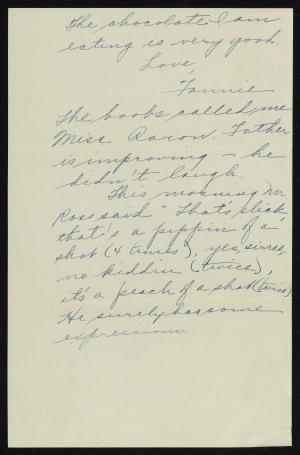 The chocolate I am
eating is very good.
Love,
Fannie
The boobs called me
Miss Aaron. Father
is improving – he
didn't laugh.
This morning Mr.
Ross said "That's slick,
that's a pippin of a
shot (4 times), yes, sirree,
no kiddin (twice),
it's a peach of a shot (twice)
He surely has some
expressions.